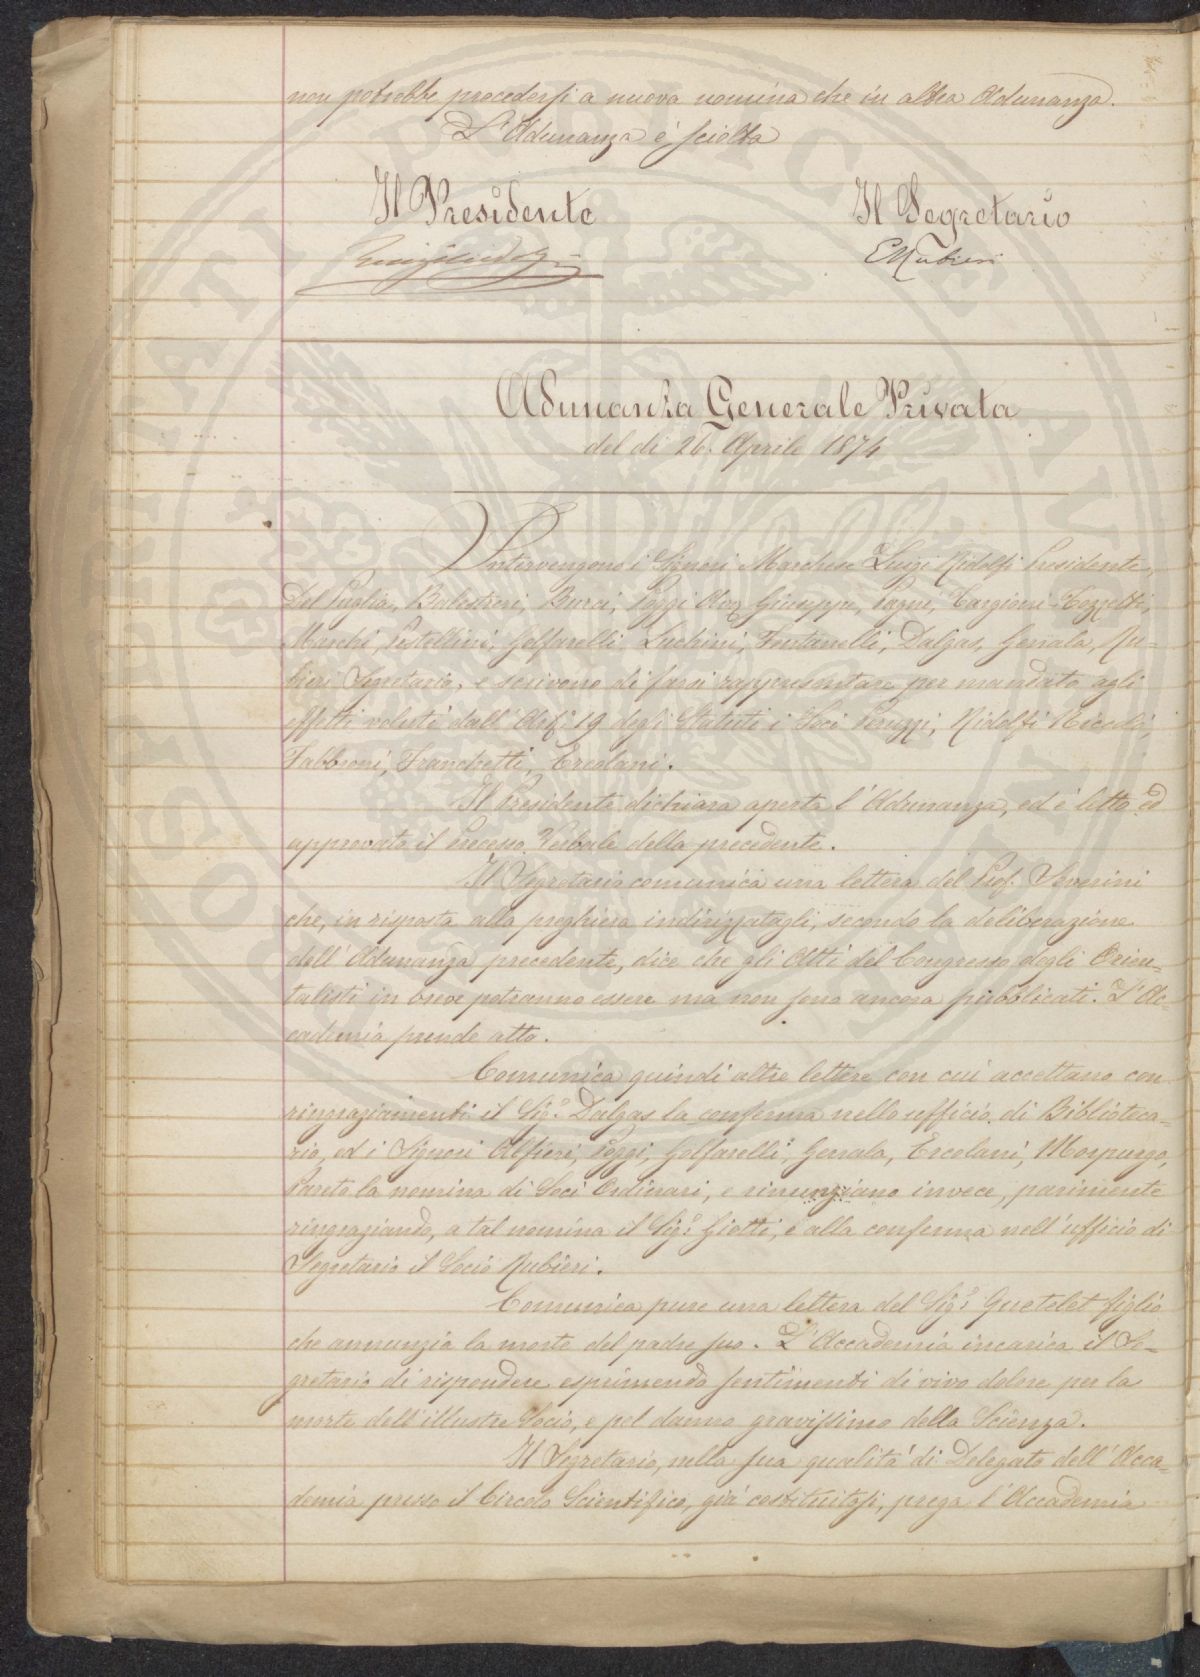 non potrebbe procedersi a nuova nomina che in altra Adunanza.
L'Adunanza è sciolta
Il Presidente
Il Segretario
Luigi Ridolfi
E Rubieri
Adunanza Generale Privata
del dì 26. Aprile 1874
Intervengono i Signori Marchese Luigi Ridolfi Presidente,
Del Puglia, Balestreri, Burci, Poggi Avv. Giuseppe, Pagni, Targioni-Tozzetti,
Marchi, Pestellini, Golfarelli, Luchini, Fontanelli, Dalgas, Genala, Ru-
bieri Segretario, e scrivono di farsi rappresentare per mandato agli
effetti voluti dall'Art.° 19 degli Statuti i Soci Peruzzi, Ridolfi Niccolò,
Fabbroni, Franchetti, Ercolani.
Il Presidente dichiara aperta l'Adunanza, ed è letto ed
approvato il Processo Verbale della precedente.
Il Segretario comunica una lettera del Prof. Severini
che, in risposta alla preghiera indirizzatagli, secondo la deliberazione
dell'Adunanza precedente, dice che gli Atti del Congresso degli Orien-
talisti in breve potranno essere ma non sono ancora pubblicati. L'Ac-
cademia prende atto.
Comunica quindi altre lettere con cui accettano con
ringraziamenti il Sig.r Dalgas la conferma nello ufficio di Biblioteca-
rio, ed i Signori Alfieri, Poggi, Golfarelli, Genala, Ercolani, Morpurgo,
Pareto la nomina di Soci Ordinari, e rinunziano invece, parimente
ringraziando, a tal nomina il Sig.r Giotti, e alla conferma nell'ufficio di
Segretario il Socio Rubieri.
Comunica pure una lettera del Sig.r Quetelet figlio
che annunzia la morte del padre suo. L'Accademia incarica il Se-
gretario di rispondere esprimendo sentimenti di vivo dolore per la
morte dell'illustre Socio, e pel danno gravissimo della Scienza.
Il Segretario, nella sua qualità di Delegato dell'Acca-
demia presso il Circolo Scientifico, già costituitosi, prega l'Accademia